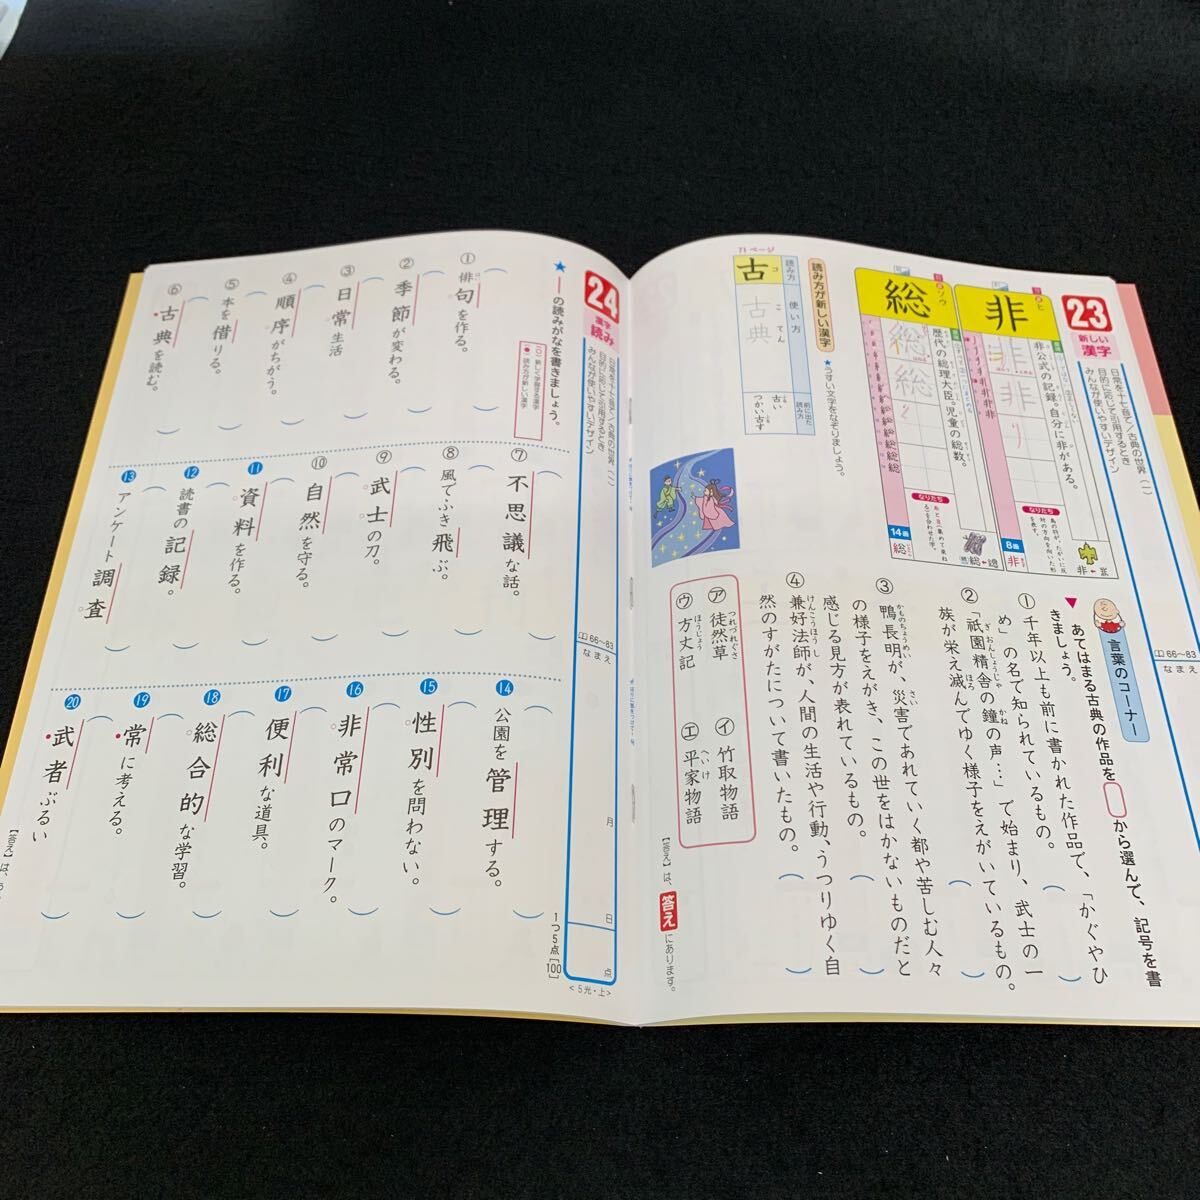 23
新しい漢字
日常を十七音で/古典の世界(一)
目的に応じて引用するとき
みんなが使いやすいデザイン
66~83
なまえ
非
非公式の記録。自分に非がある。
なりたち
8画
非
総
ソウ
歴代の総理大臣。児童の総数。
なりたち
14画
総
読み方が新しい漢字
★うすい文字をなぞりましょう。
71ページ
読み方
使い方
前に出た読み方
古
コ
古典
こてん
古い
つかい古す
言葉のコーナー
▼あてはまる古典の作品を
から選んで、記号を書
きましょう。
①千年以上も前に書かれた作品で、「かぐやひ
め」の名で知られているもの。
②「祇園精舎の鐘の声…」で始まり、武士の一
族が栄え滅んでゆく様子をえがいているもの。
③鴨長明が、災害であれていく都や苦しむ人々
の様子をえがき、この世をはかないものだと
感じる見方が表れているもの。
④兼好法師が、人間の生活や行動、うつりゆく自
然のすがたについて書いたもの。
ア 徒然草
イ 竹取物語
ウ 方丈記
エ 平家物語
【答え】は、答えにあります。
24
漢字読み
日常を十七音で/古典の世界(一)
目的に応じて引用するとき
みんなが使いやすいデザイン
66~83
なまえ
月
日
点
<5光・上>
★―の読みがなを書きましょう。
(○)新しく学習する漢字
(●)読み方が新しい漢字
1つ5点[100]
①俳句を作る。
②季節が変わる。
③日常生活
④順序がちがう。
⑤本を借りる。
⑥古典を読む。
⑦不思議な話。
⑧風でふき飛ぶ。
⑨武士の刀。
⑩自然を守る。
⑪資料を作る。
⑫読書の記録。
⑬アンケート調査
⑭公園を管理する。
⑮性別を問わない。
⑯非常口のマーク。
⑰便利な道具。
⑱総合的な学習。
⑲常に考える。
⑳武者ぶるい
【答え】は、う